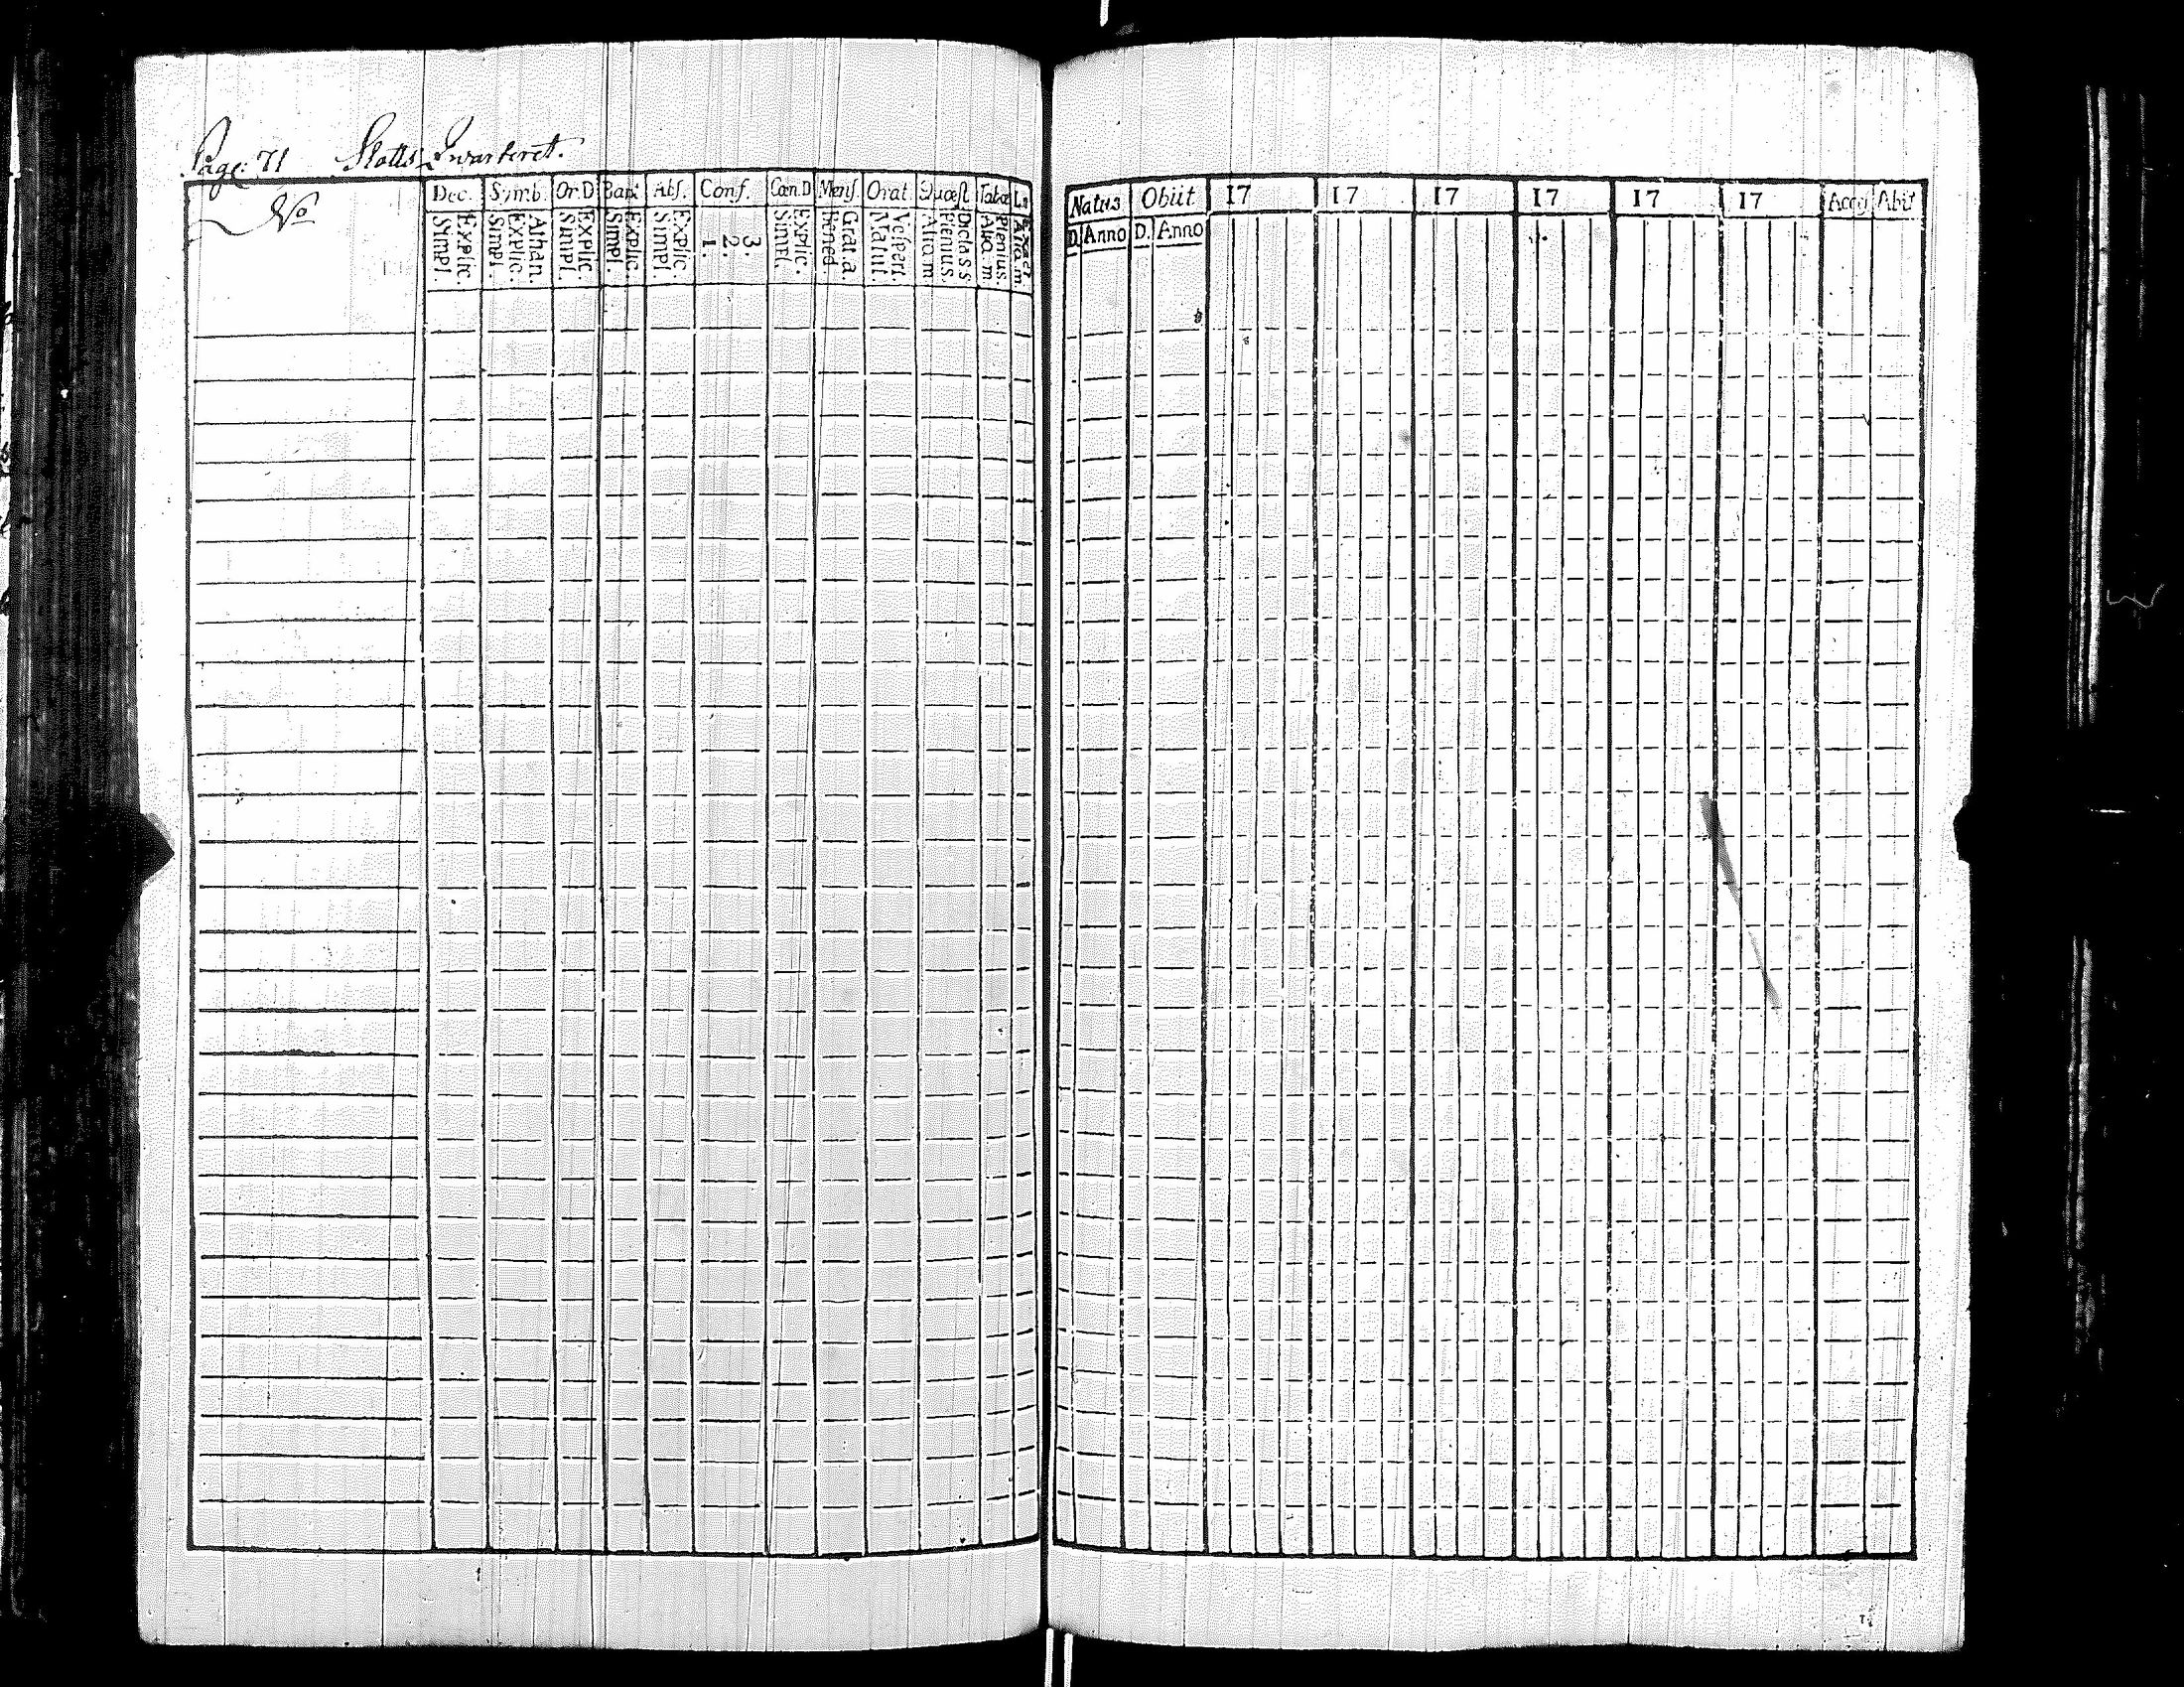 Page: 71 Slotts Qwarteret.
No
Dec. Simb. Or.D Bapt Abs. Conf. Cœn.D Mens. Orat Quæst Tabæ L:
Simpl. Explic. Simpl. Explic. Athan. Simpl. Explic. Simpl. Explic. Simpl. Explic. 1. 2. 3. Simpl. Explic. Bened. Grat.a. Matut. Vespert. Aliq.m Plenius. Dicta s.s. Aliq.m Plenius. Aliq.m Exact
Natus Obiit 17 17 17 17 17 17 Acces Abit
D. Anno D. Anno